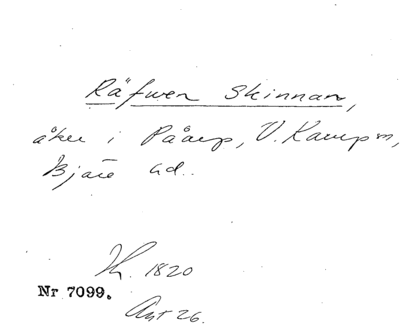 Räfwen Skinnan,
åker i Påarp, V. Karup sn,
Bjäre hd..
1820
Nr 7099.
Akt 26.